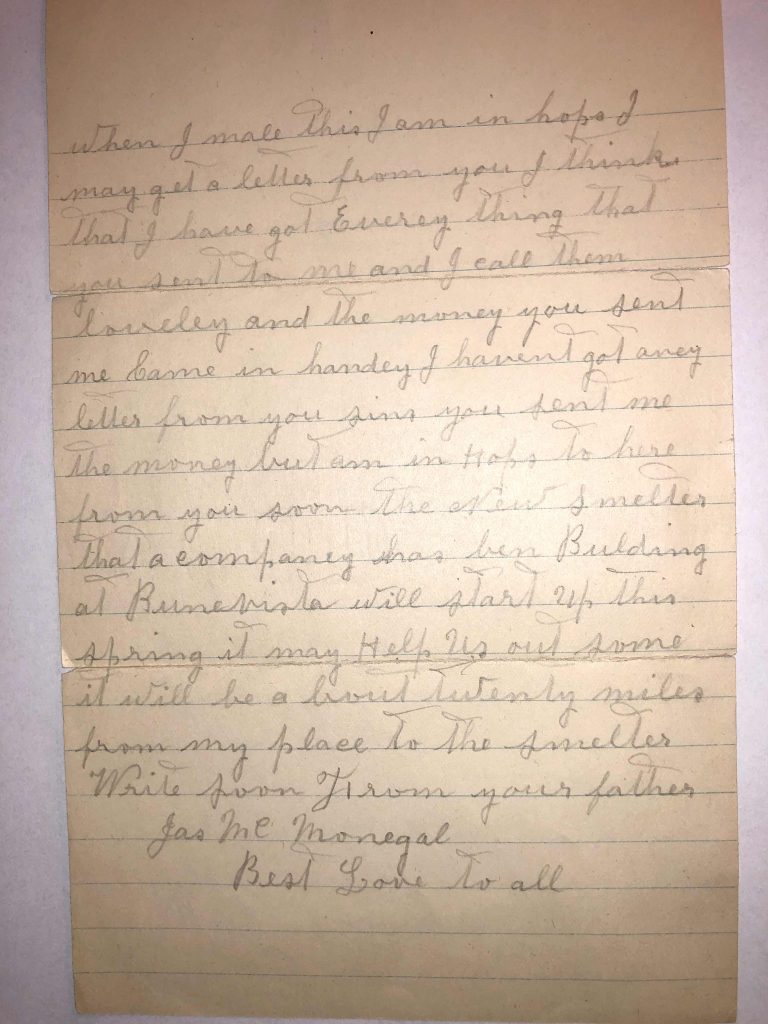 When I male this I am in hops I
may get a letter from you I think
that I have got Everey thing that
you sent to me and I call them
loveley and the money you sent
me Came in handey I havent got aney
letter from you sins you sent me
the money but am in Hops to here
from you soon the New Smelter
that a companey has ben Bulding
at Bunevista will start up this
spring it may Help Us out some
it will be a bout twenty miles
from my place to the smelter
Write soon From your father
Jas Mc Monegal
Best Love to all